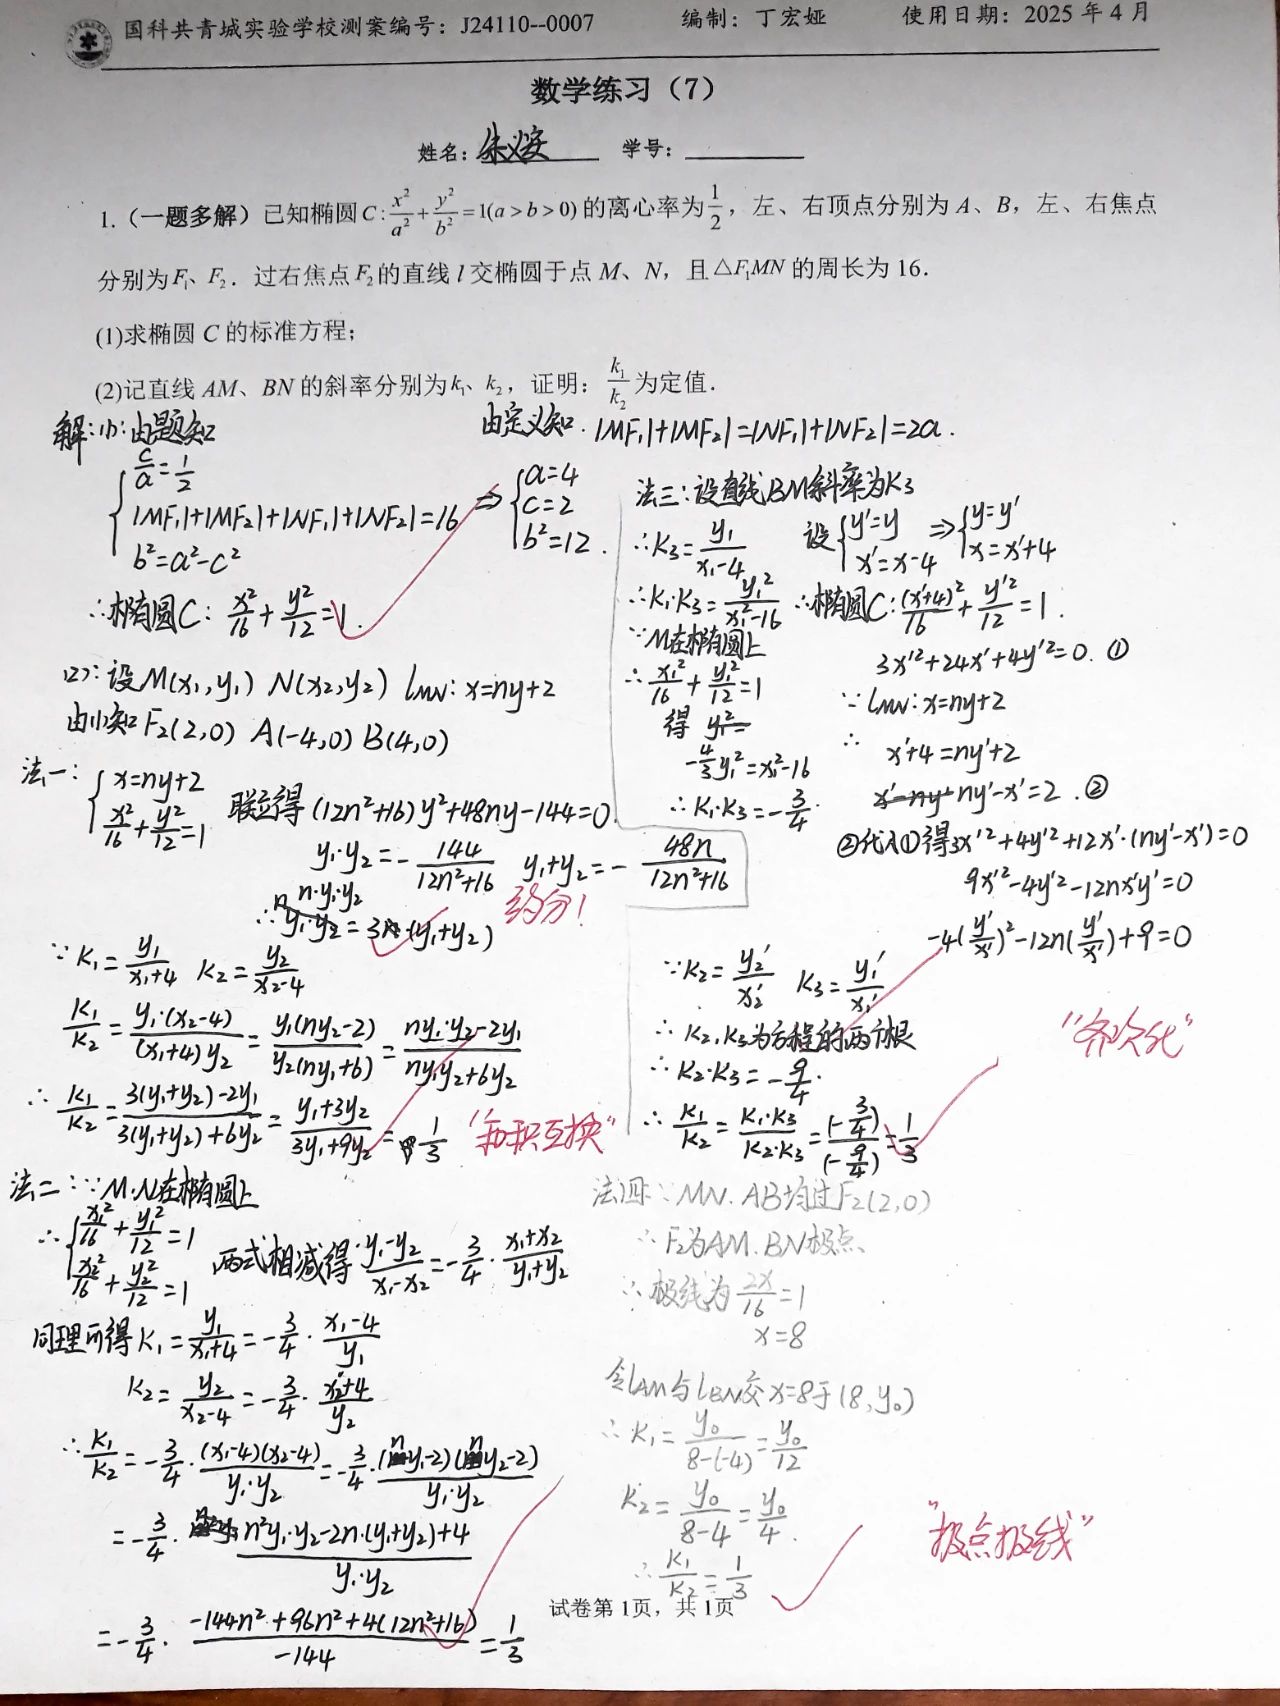 国科共青城实验学校测案编号：J24110--0007 编制：丁宏娅 使用日期：2025 年 4 月
数学练习（7）
姓名： 学号：
1.（一题多解）已知椭圆 C : x²/a² + y²/b² = 1(a > b > 0) 的离心率为 1/2，左、右顶点分别为 A、B，左、右焦点
分别为 F₁、F₂．过右焦点 F₂ 的直线 l 交椭圆于点 M、N，且△F₁MN 的周长为 16．
(1)求椭圆 C 的标准方程；
(2)记直线 AM、BN 的斜率分别为 k₁、k₂，证明：k₁/k₂ 为定值．
解：(1)：由题知 由定义知．|MF₁|+|MF₂|=|NF₁|+|NF₂|=2a．
{ c/a = 1/2
|MF₁|+|MF₂|+|NF₁|+|NF₂|=16
b²=a²-c²
⇒ { a=4
c=2
b²=12．
∴椭圆C：x²/16 + y²/12 = 1．
(2)：设M(x₁,y₁) N(x₂,y₂) l_MN：x=ny+2
由(1)知F₂(2,0) A(-4,0) B(4,0)
法一：{ x=ny+2
x²/16 + y²/12 = 1
联立得(12n²+16)y²+48ny-144=0
y₁·y₂ = - 144/(12n²+16) y₁+y₂ = - 48n/(12n²+16)
约分！
n·y₁·y₂
∴ = 3(y₁+y₂)
∵ K₁ = y₁/(x₁+4) K₂ = y₂/(x₂-4)
K₁/K₂ = y₁·(x₂-4)/((x₁+4)y₂) = y₁(ny₂-2)/(y₂(ny₁+6)) = (ny₁·y₂-2y₁)/(ny₁y₂+6y₂)
∴ K₁/K₂ = (3(y₁+y₂)-2y₁)/(3(y₁+y₂)+6y₂) = (y₁+3y₂)/(3y₁+9y₂) = 1/3
“和积互换”
法二：∵M·N在椭圆上
∴ { x₁²/16 + y₁²/12 = 1
x₂²/16 + y₂²/12 = 1
两式相减得：(y₁-y₂)/(x₁-x₂) = -3/4 · (x₁+x₂)/(y₁+y₂)
同理可得 K₁ = y₁/(x₁+4) = -3/4 · (x₁-4)/y₁
K₂ = y₂/(x₂-4) = -3/4 · (x₂+4)/y₂
∴ K₁/K₂ = -3/4 · (x₁-4)(x₂-4)/(y₁·y₂) = -3/4 · (ny₁-2)(ny₂-2)/(y₁·y₂)
= -3/4 · (n²y₁·y₂-2n·(y₁+y₂)+4)/(y₁·y₂)
= -3/4 · (-144n²+96n²+4(12n²+16))/(-144) = 1/3
法三：设直线BM斜率为K₃
∴K₃ = y₁/(x₁-4)
∴K₁·K₃ = y₁²/(x₁²-16)
∵M在椭圆上
∴ x₁²/16 + y₁²/12 = 1
得 y₁²=
-4/3 y₁² = x₁²-16
∴K₁·K₃ = -3/4．
设 { y'=y
x'=x-4
⇒ { y=y'
x=x'+4
∴椭圆C：(x'+4)²/16 + y'²/12 = 1．
3x'²+24x'+4y'²=0．①
∵ l_MN：x=ny+2
∴ x'+4=ny'+2
x'-ny' ny'-x'=2．②
②代入①得3x'²+4y'²+12x'·(ny'-x')=0
9x'²-4y'²-12nx'y'=0
-4(y'/x')²-12n(y'/x')+9=0
∵K₂ = y₂'/x₂' K₃ = y₁'/x₁'
∴ K₂,K₃为方程的两根
∴ K₂·K₃ = -9/4．
∴ K₁/K₂ = K₁·K₃/(K₂·K₃) = (-3/4)/(-9/4) = 1/3
“齐次化”
法四：∵MN．AB均过F₂(2,0)
∴F₂为AM．BN极点
∴极线为 2x/16 = 1
x=8
令l_AM与l_BN交x=8于(8,y₀)
∴ K₁ = y₀/(8-(-4)) = y₀/12
K₂ = y₀/(8-4) = y₀/4．
∴ K₁/K₂ = 1/3
“极点极线”
试卷第 1页，共 1页